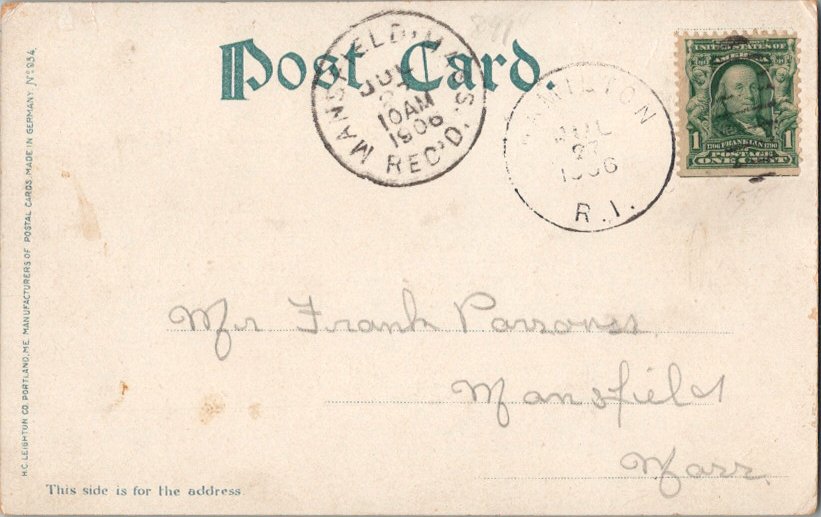 Post Card.
MANSFIELD, MASS.
JUL
10AM
1906
REC'D.
HAMILTON
JUL
27
1906
R.I.
UNITED STATES OF
AMERICA
1 1706 FRANKLIN 1790 1
POSTAGE
ONE CENT
Mr Frank Parsons
Mansfield
Mass
This side is for the address
H.C. LEIGHTON CO. PORTLAND, ME. MANUFACTURERS OF POSTAL CARDS. MADE IN GERMANY Nº 934